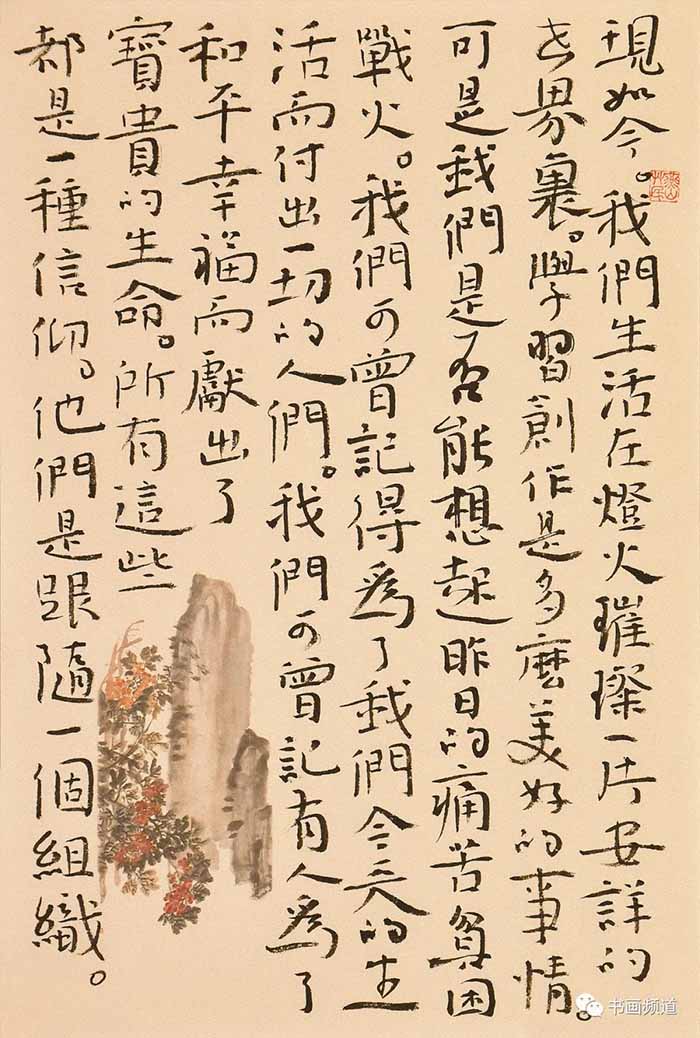 現如今。我們生活在燈火璀璨一片安詳的
世界裏。學習創作是多麽美好的事情。
可是我們是否能想起昨日的痛苦貧困
戰火。我們可曾記得爲了我們今天的生
活而付出一切的人們。我們可曾記有人爲了
和平幸福而獻出了
寶貴的生命。所有這些
都是一種信仰。他們是跟隨一個組織。
书画频道